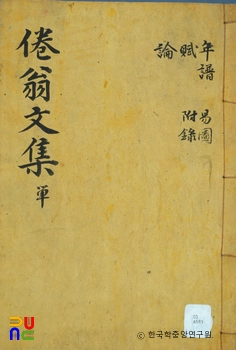 倦翁文集 單
年譜 易圖
賦 附錄
論
PUNC
© 한국학중앙연구원